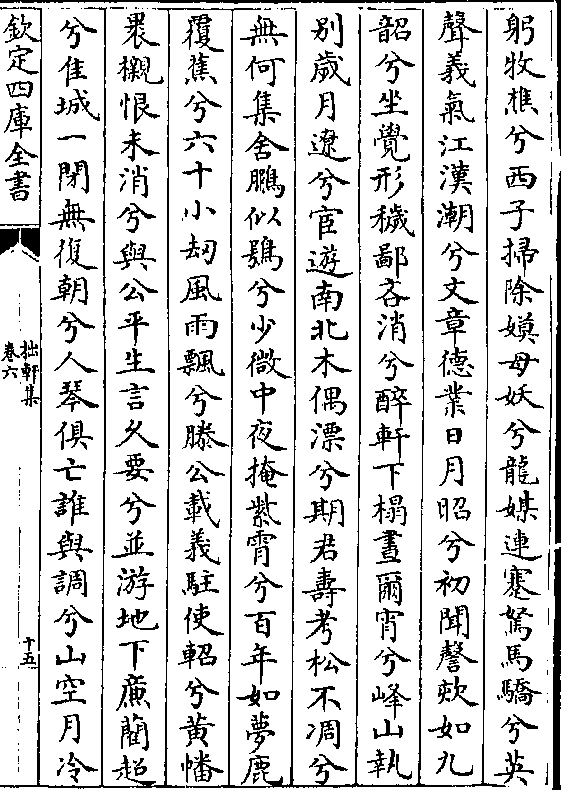 躬牧樵兮西子掃除嫫母妖兮龍媒連蹇駑馬驕兮英
聲義氣江漢潮兮文章德業日月昭兮初聞謦欬如九
韶兮坐覺形穢鄙吝消兮醉軒下榻晝爾宵兮峰山執
别歲月遼兮宦遊南北木偶漂兮期君壽考松不凋兮
無何集舍鵩似鴞兮少微中夜掩紫霄兮百年如夢鹿
覆蕉兮六十小刼風雨飄兮滕公載義駐使軺兮黄幡
褁櫬恨未消兮與公平生言久要兮並游地下廉藺超
兮佳城一閉無復朝兮人琴俱亡誰與調兮山空月冷
欽定四庫全書
拙軒集
卷六
十五